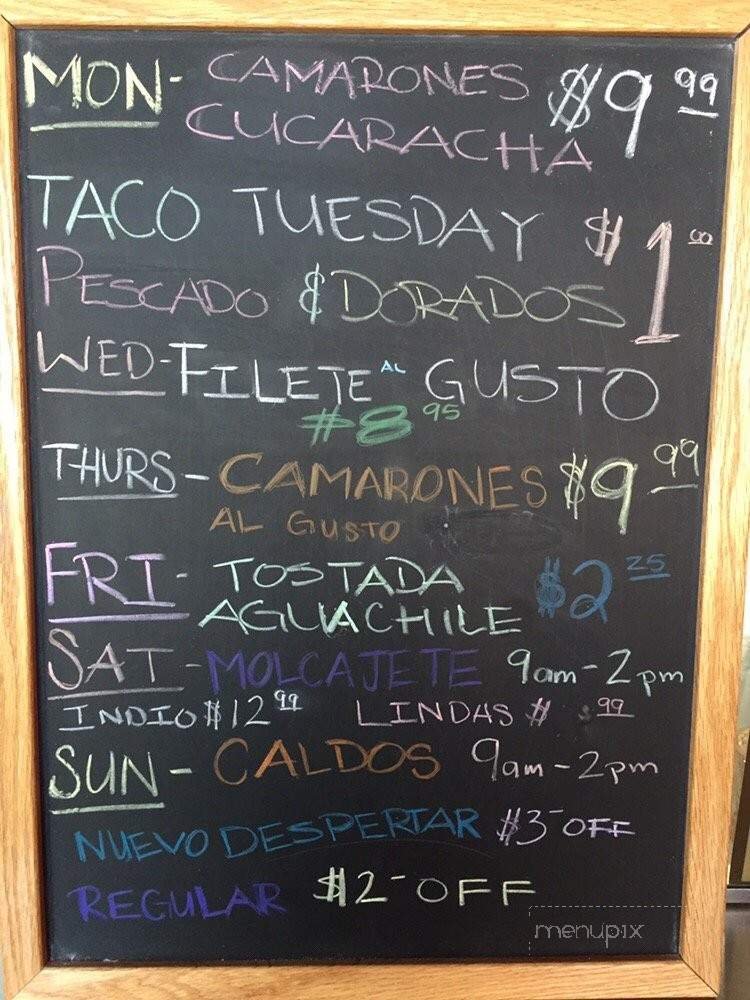 MON- CAMARONES $9 99
CUCARACHA
TACO TUESDAY $1 00
PESCADO & DORADOS
WED-FILETE AL GUSTO
$8 95
THURS- CAMARONES $9 99
AL GUSTO
FRI- TOSTADA $2 25
AGUACHILE
SAT-MOLCAJETE 9am-2pm
INDIO $12 99 LINDAS $ 99
SUN- CALDOS 9am-2pm
NUEVO DESPERTAR $3- OFF
REGULAR $2- OFF
menupix